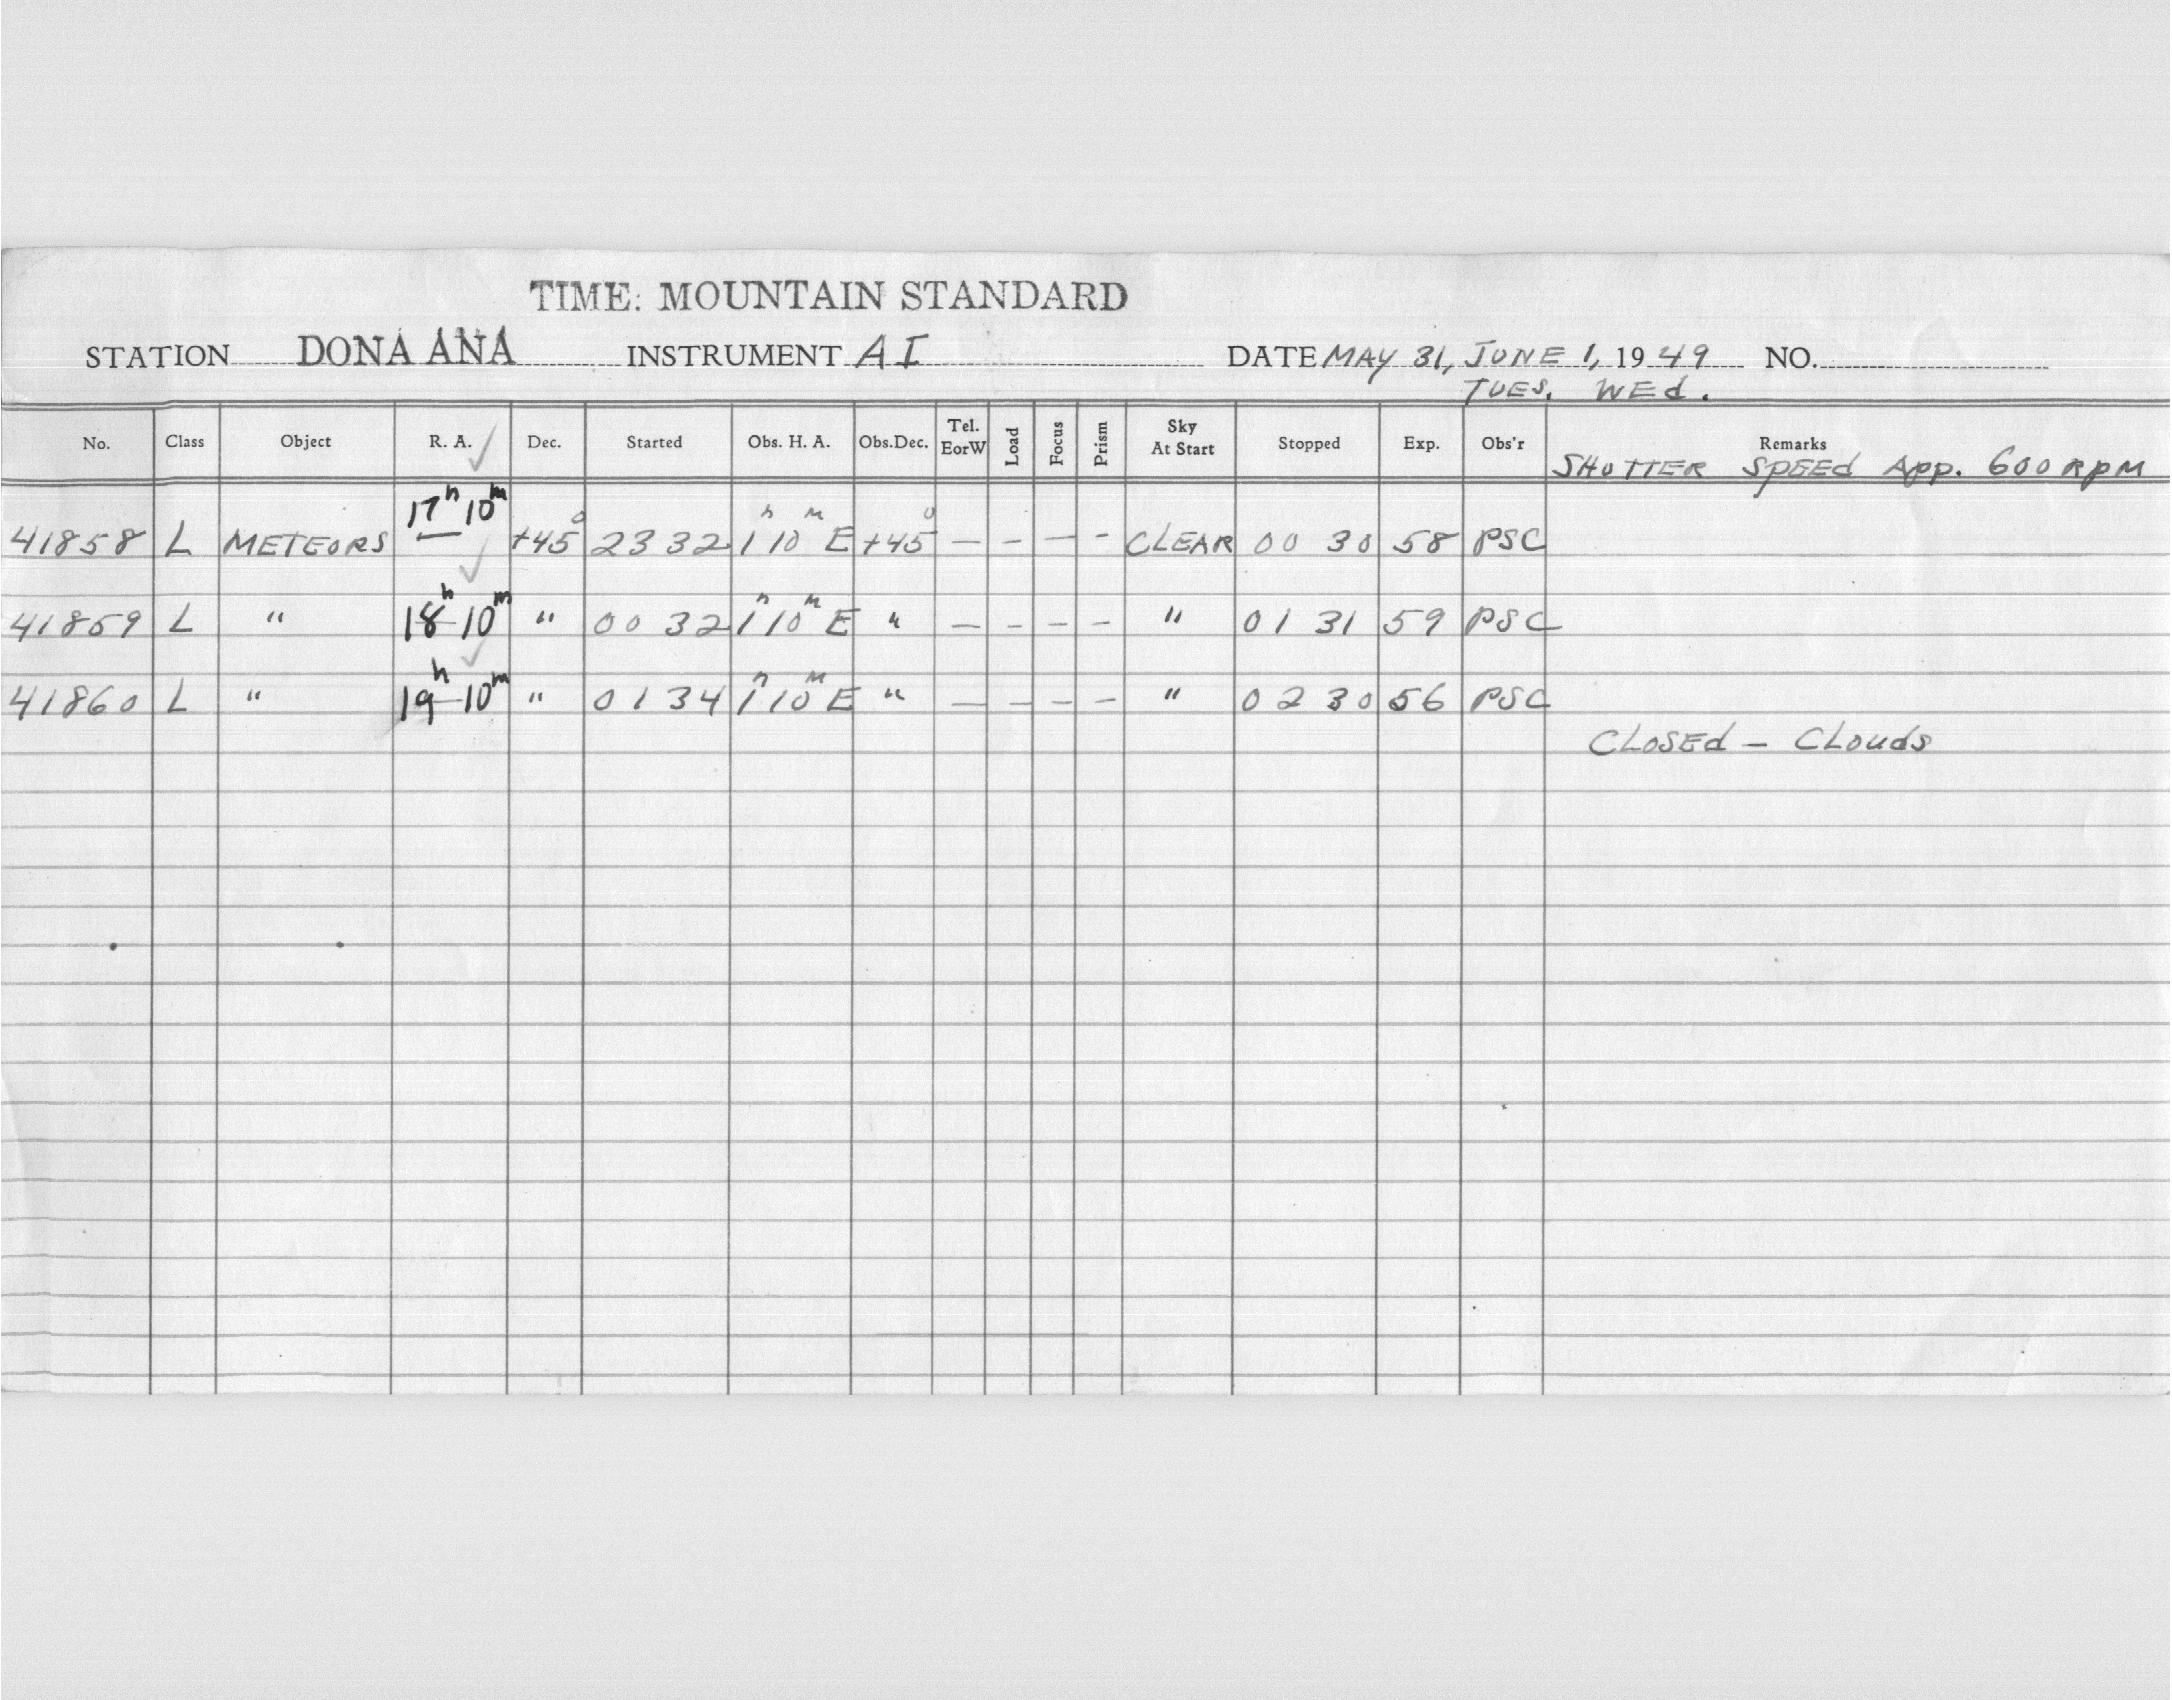 TIME: MOUNTAIN STANDARD
STATION DONA ANA INSTRUMENT AI DATE MAY 31, JUNE 1, 1949 NO.
TUES. WEd.
No. Class Object R. A. Dec. Started Obs. H. A. Obs.Dec. Tel. EorW Load Focus Prism Sky At Start Stopped Exp. Obs'r Remarks
SHUTTER SPEEd App. 600 RPM
41858 L METEORS 17h 10m +45° 2332 1h 10m E +45° — — — — CLEAR 00 30 58 PSC
41859 L " 18h 10m " 00 32 1h 10m E " — — — — " 01 31 59 PSC
41860 L " 19h 10m " 01 34 1h 10m E " — — — — " 02 30 56 PSC
CLOSEd — CLouds